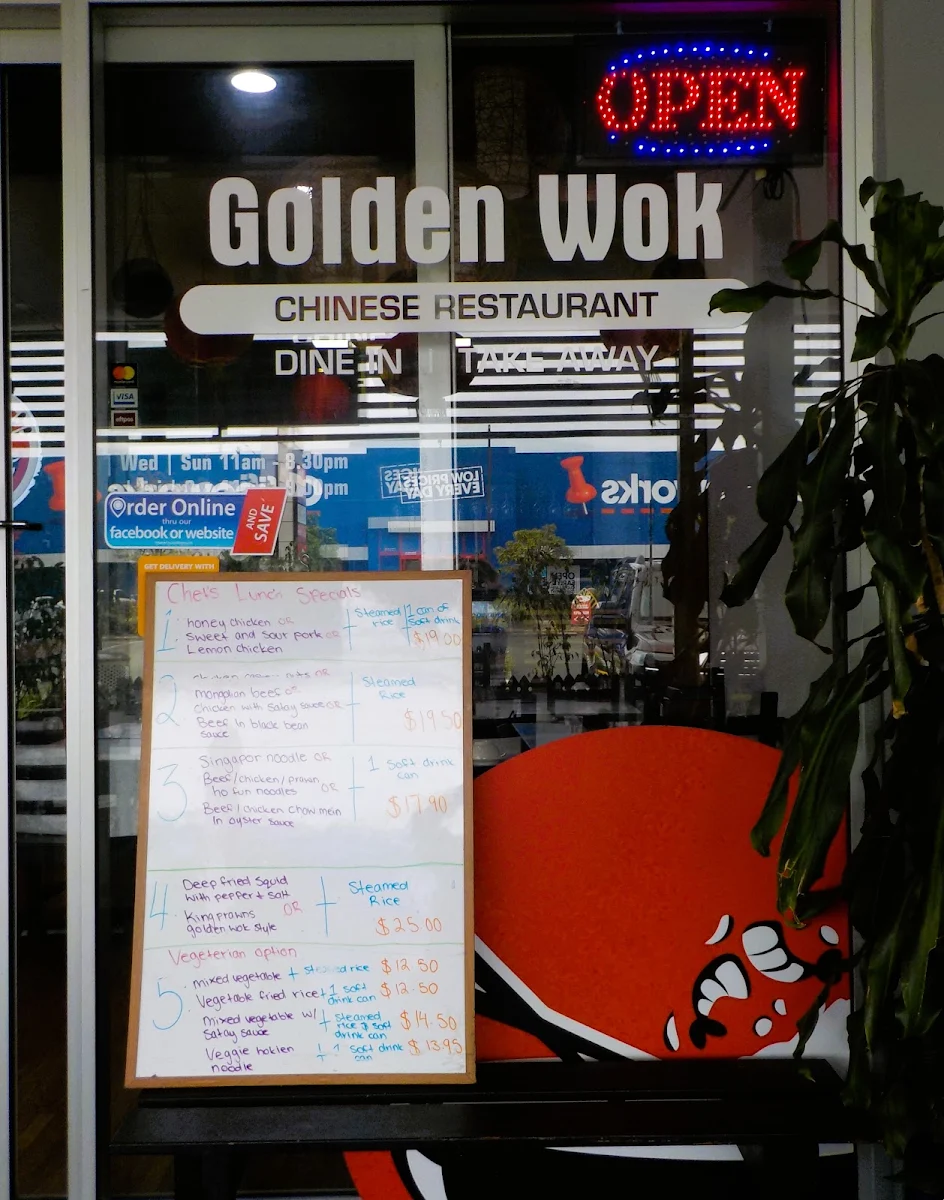 OPEN
Golden Wok
CHINESE RESTAURANT
DINE IN | TAKE AWAY
VISA
Wed | Sun 11am - 8.30pm
LOW PRICES
EVERY DAY
works
Order Online
thru our
facebook or website
AND
SAVE
GET DELIVERY WITH
Chef's Lunch Specials
1. honey chicken OR
Sweet and sour pork OR
Lemon chicken
+ Steamed rice | 1 can of soft drink
$19.00
2. OR
Mongolian beef or
Chicken with satay sauce OR
Beef in black bean
sauce
+ Steamed
Rice
$19.50
3. Singapor noodle OR
Beef/chicken/prawn
ho fun noodles OR
Beef/chicken chow mein
In oyster sauce
+ 1 Soft drink
can
$17.90
4. Deep fried Squid
with pepper + salt
OR
King prawns
golden wok style
+ Steamed
Rice
$25.00
Vegeterian option
5. mixed vegetable + steamed rice $12.50
Vegetable fried rice + 1 soft drink can $12.50
Mixed vegetable w/
Satay sauce
+ steamed rice & soft drink can $14.50
Veggie hokien
noodle
+ 1 soft drink can $13.95